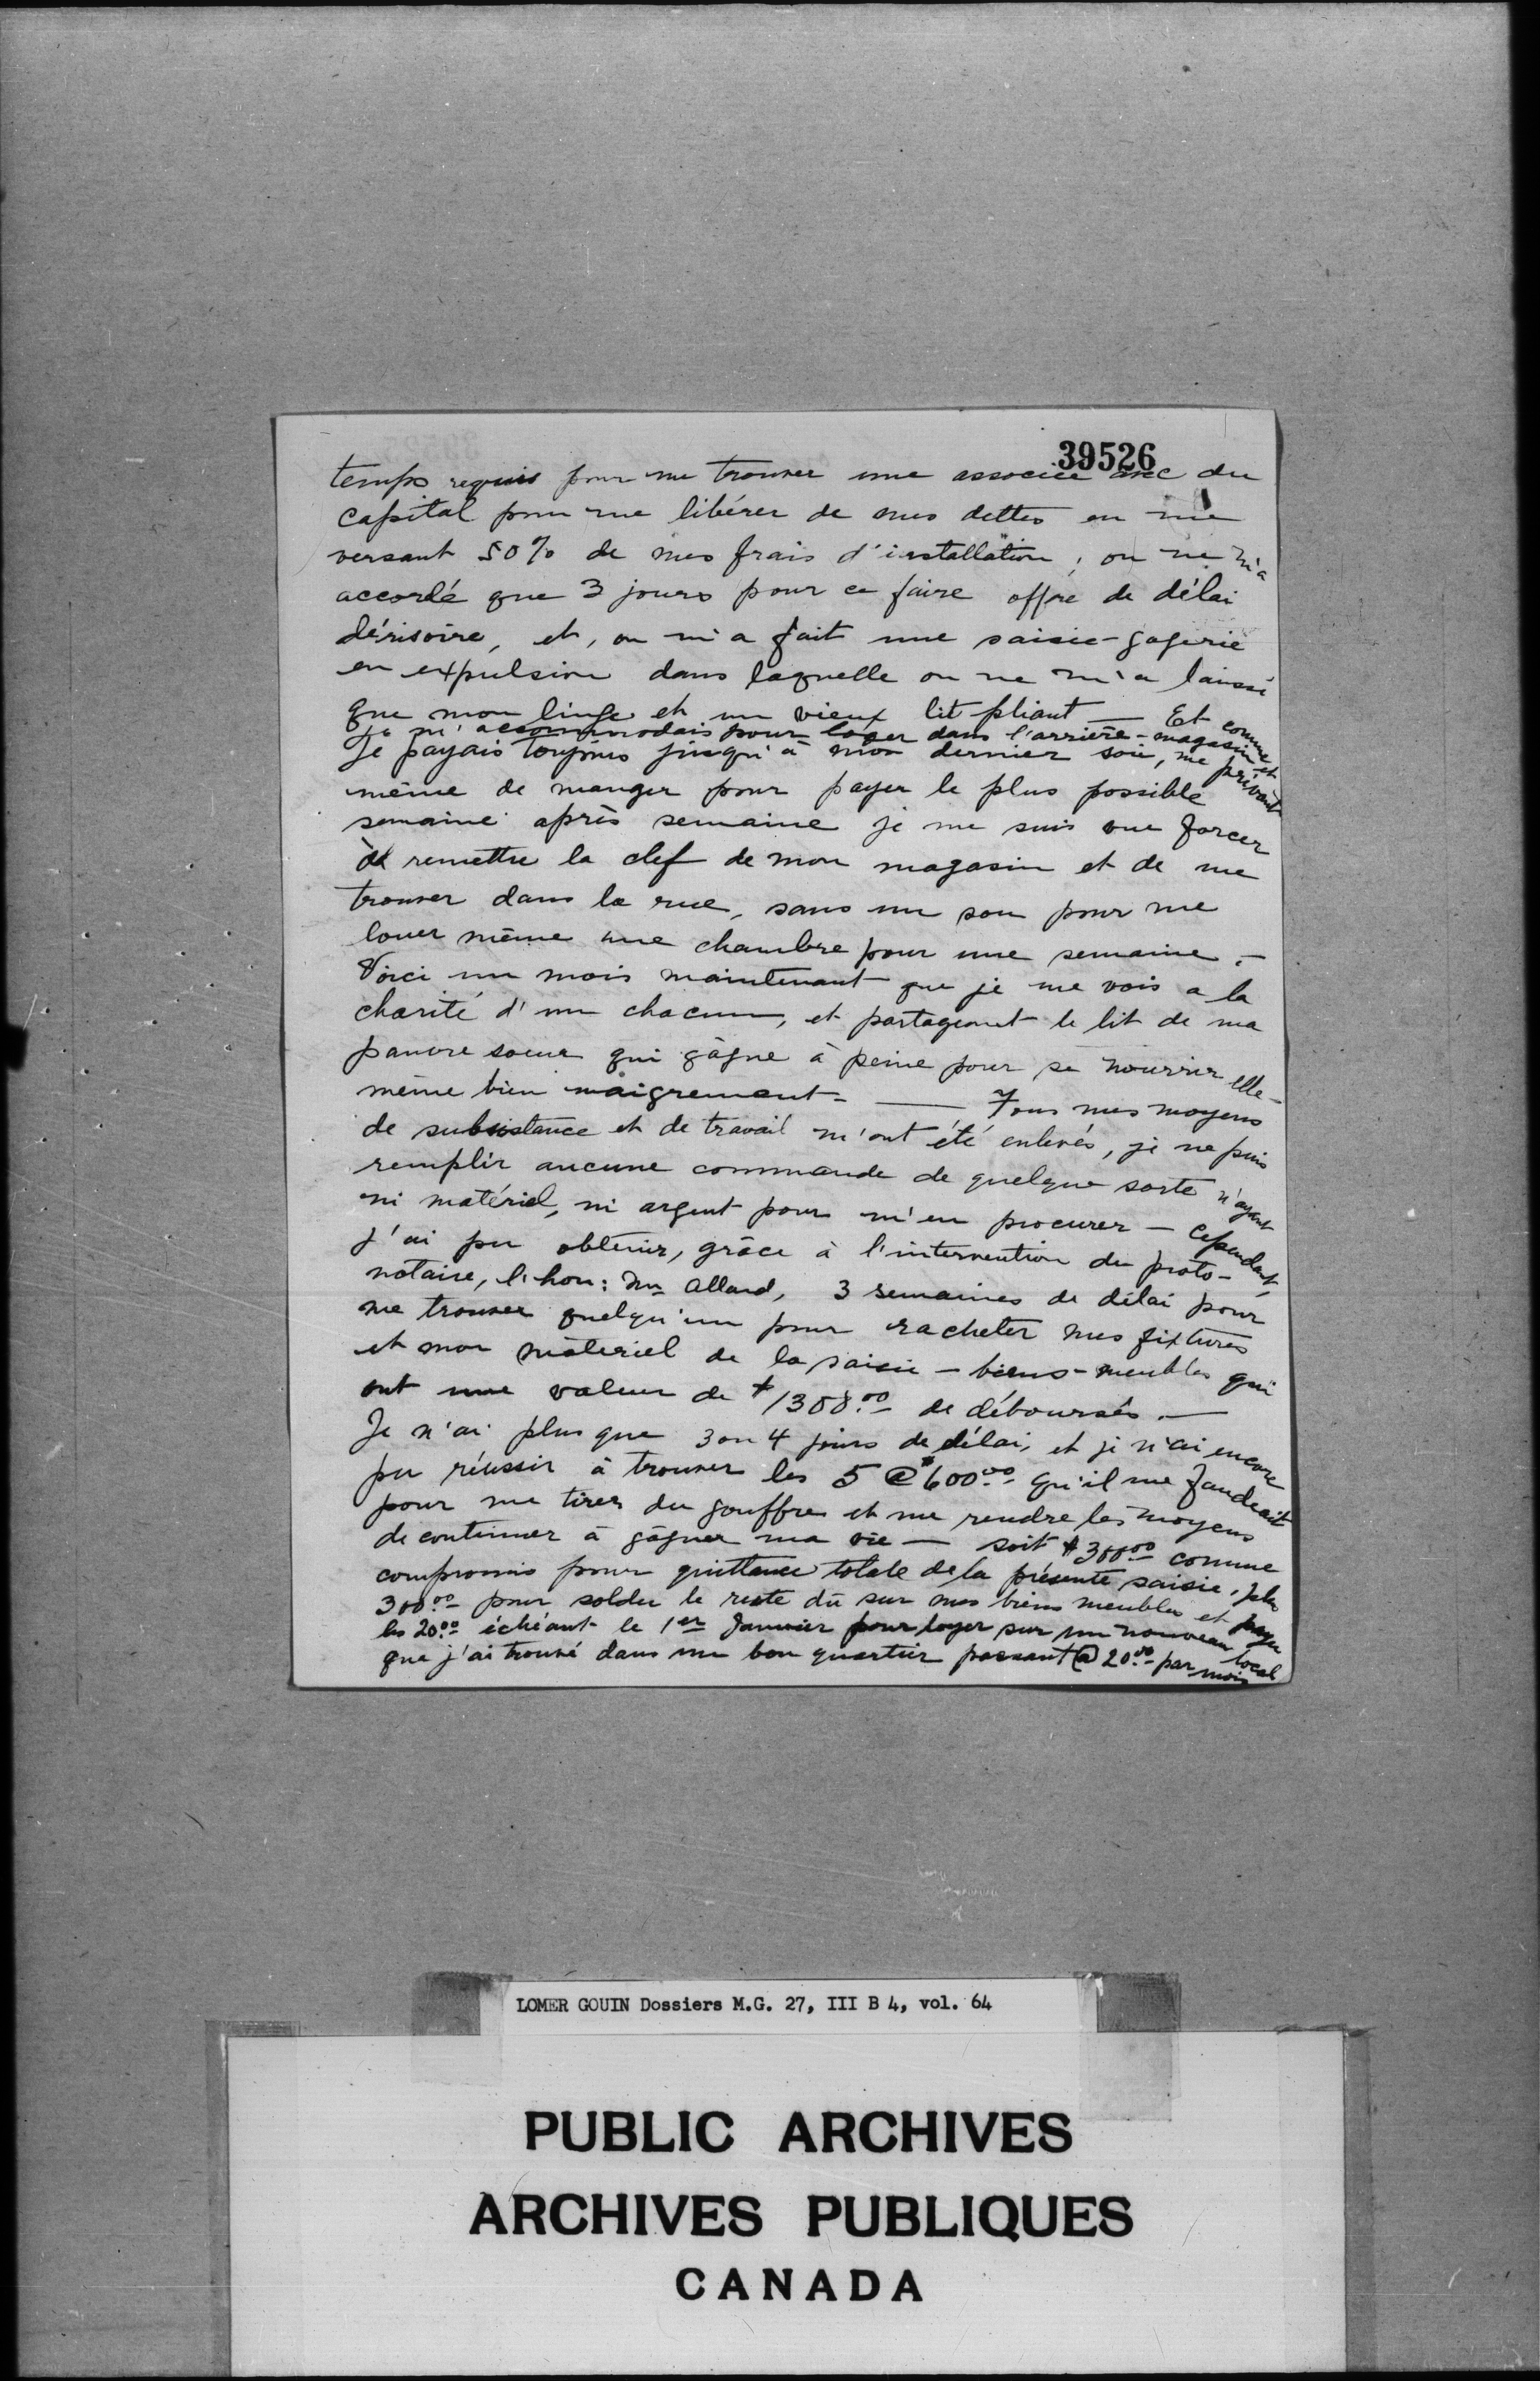 39526
temps requis pour me trouver une associée avec du
capital pour me libérer de mes dettes en me
versant 50% de mes frais d'installation; on ne m'a
accordé que 3 jours pour ce faire offre de délai
dérisoire, et, on m'a fait une saisie-gagerie
en expulsion dans laquelle on ne m'a laissé
que mon linge et un vieux lit pliant — Et comme
je m'accommodais pour loger dans l'arrière-magasin et
je payais toujours jusqu'à mon dernier sou, me privant
même de manger pour payer le plus possible
semaine après semaine je me suis vue forcer
à remettre la clef de mon magasin et de me
trouver dans la rue, sans un sou pour me
louer même une chambre pour une semaine. —
Voici un mois maintenant que je me vois a la
charité d'un chacun, et partageant le lit de ma
pauvre soeur qui gâgne à peine pour se nourrir elle-
même bien maigrement — Tous mes moyens
de subsistance et de travail m'ont été enlevés, je ne puis
remplir aucune commande de quelque sorte n'ayant
ni matériel, ni argent pour m'en procurer — Cependant,
j'ai pu obtenir, grâce à l'intervention du proto-
notaire, l'hon: Mr Allard, 3 semaines de délai pour
me trouver quelqu'un pour racheter mes fixtures
et mon matériel de la saisie — biens-meubles qui
ont une valeur de $1308.00 de déboursés. —
Je n'ai plus que 3 ou 4 jours de délai, et je n'ai encore
pu réussir à trouver les 5 @ $600.00 qu'il me faudrait
pour me tirer du gouffre et me rendre les moyens
de continuer à gâgner ma vie — soit $300.00 comme
compromis pour quittance totale de la présente saisie, plus
300.00 pour solder le reste dû sur mes biens meubles et payer
les 20.00 échéant le 1er Janvier pour loyer sur un nouveau local
que j'ai trouvé dans un bon quartier passant @ 20.00 par mois
LOMER GOUIN Dossiers M.G. 27, III B 4, vol. 64
PUBLIC ARCHIVES
ARCHIVES PUBLIQUES
CANADA